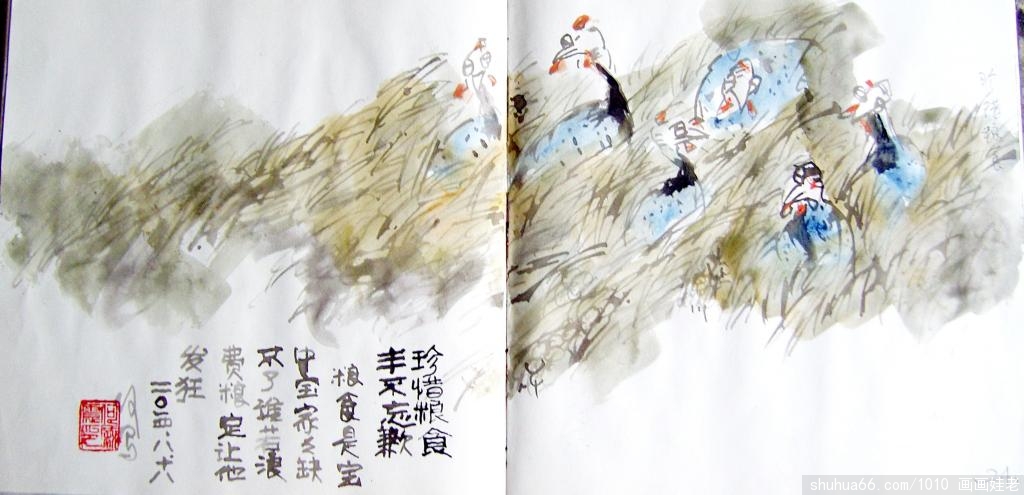 珍惜粮食
丰不忘歉
粮食是宝
中宝家々缺
不了谁若浪
费粮定让他
发狂
二〇一四.八.十八
shuhua66.com/1010 画画娃老